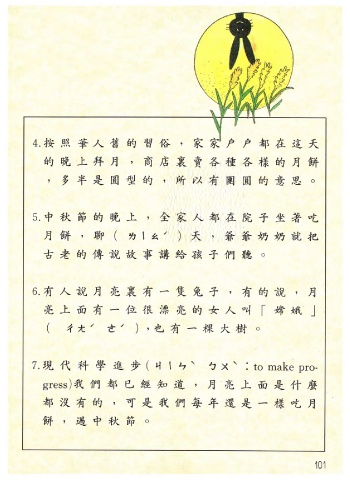 4.按照華人舊的習俗，家家戶戶都在這天
的晚上拜月，商店裏賣各種各樣的月餅
，多半是圓型的，所以有團圓的意思。
5.中秋節的晚上，全家人都在院子坐著吃
月餅，聊(ㄌㄧㄠˊ)天，爺爺奶奶就把
古老的傳說故事講給孩子們聽。
6.有人說月亮裏有一隻兔子，有的說，月
亮上面有一位很漂亮的女人叫「嫦娥」
(ㄔㄤˊㄜˊ)，也有一棵大樹。
7.現代科學進步(ㄐㄧㄣˋㄅㄨˋ：to make pro-
gress)我們都已經知道，月亮上面是什麼
都沒有的，可是我們每年還是一樣吃月
餅，過中秋節。
101